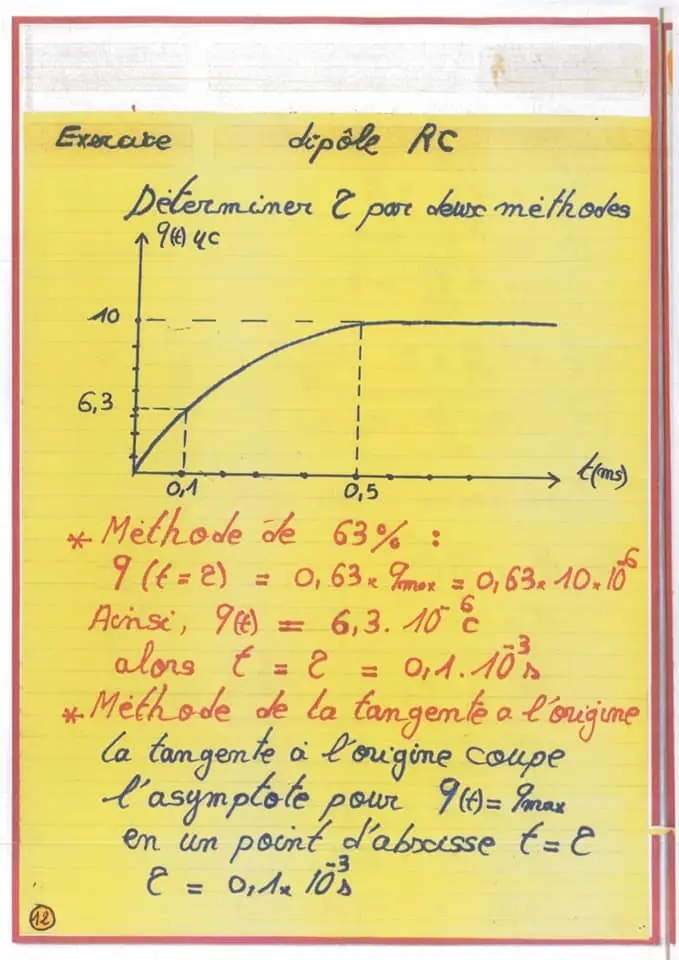 Exercice dipôle RC
Déterminer τ par deux méthodes
q(t) μc
10
6,3
0,1 0,5 t(ms)
* Méthode de 63% :
q (t = τ) = 0,63 × qmax = 0,63 × 10 × 10⁻⁶
Ainsi, q(t) = 6,3 . 10⁻⁶ c
alors t = τ = 0,1 . 10⁻³ s
* Méthode de la tangente a l'origine
la tangente à l'origine coupe
l'asymptote pour q(t) = qmax
en un point d'abscisse t = τ
τ = 0,1 × 10⁻³ s
12